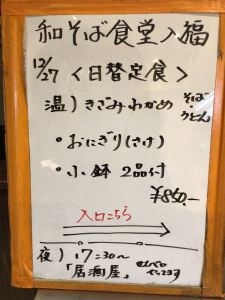 和そば食堂 入福
12/27 〈日替定食〉
温）きざみわかめ そば・うどん
・おにぎり(さけ)
・小鉢 2品付
¥850-
入口こちら
夜）17:30〜
「居酒屋」